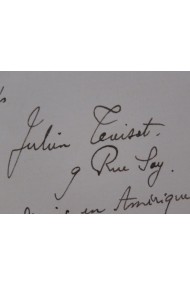 Julien Teuisot.
9 Rue Say.
en Amérique